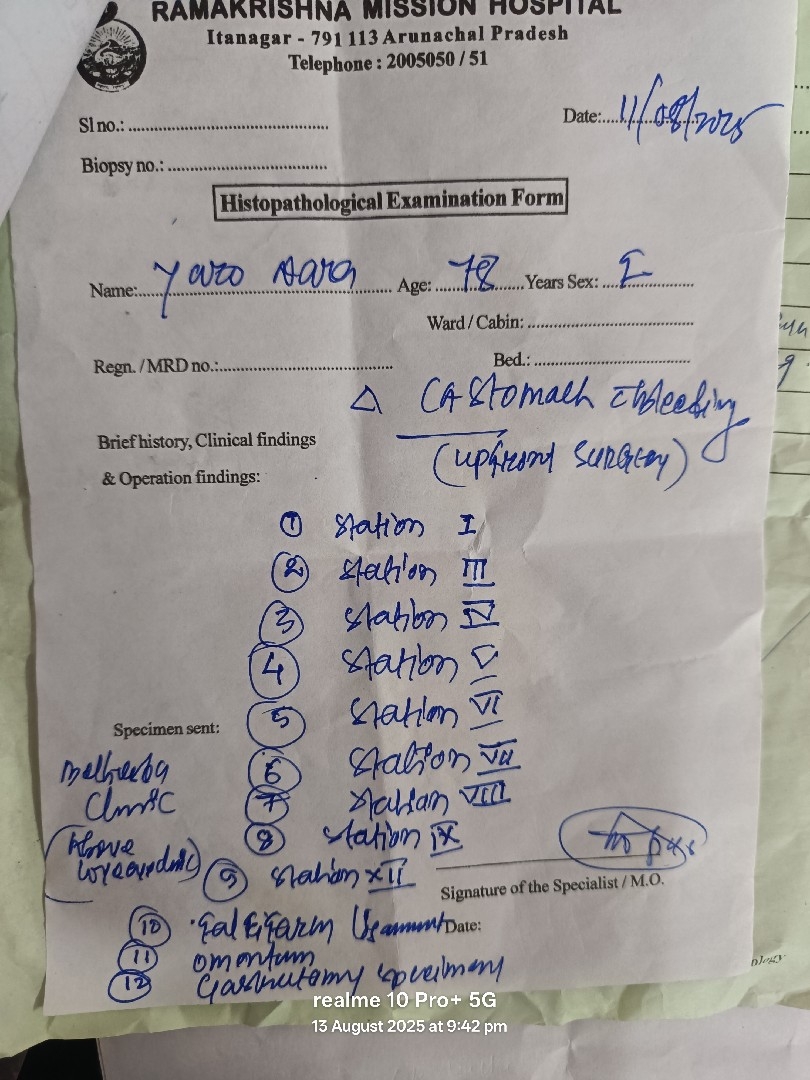 RAMAKRISHNA MISSION HOSPITAL
Itanagar - 791 113 Arunachal Pradesh
Telephone : 2005050 / 51
Sl no.: ........................
Date: 11/08/2025
Biopsy no.: ........................
Histopathological Examination Form
Name: Yaro
Age: 78 Years Sex:
Ward / Cabin: ........................
Regn. / MRD no.: ........................
Bed.: ........................
△ CA Stomach c̄ bleeding
Brief history, Clinical findings
(upfront surgery)
& Operation findings:
① Station I
② Station III
③ Station IV
④ Station V
⑤ Station VI
Specimen sent:
⑥ Station VII
Clinic
⑦ Station VIII
(Above
⑧ Station IX
⑨ Station XII
Signature of the Specialist / M.O.
⑩ Falciform ligament
Date:
⑪ omentum
⑫ Gastrectomy specimen
realme 10 Pro+ 5G
13 August 2025 at 9:42 pm